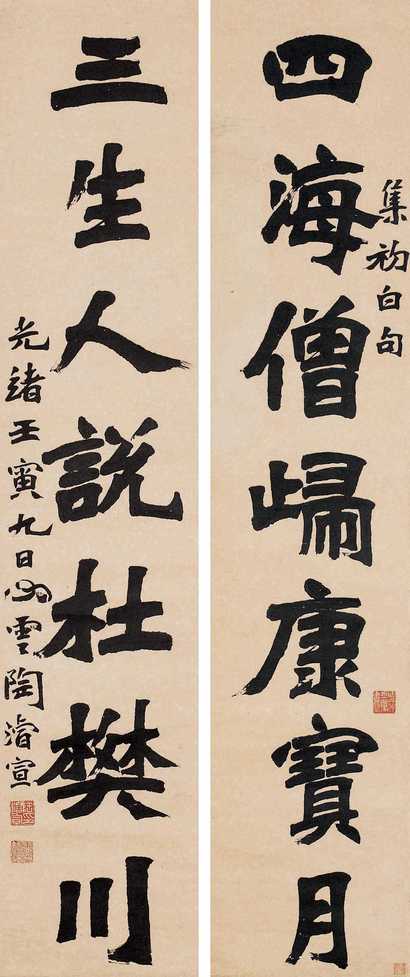 集初白句
四海僧歸康寶月
三生人說杜樊川
光緒壬寅九日心雲陶濬宣